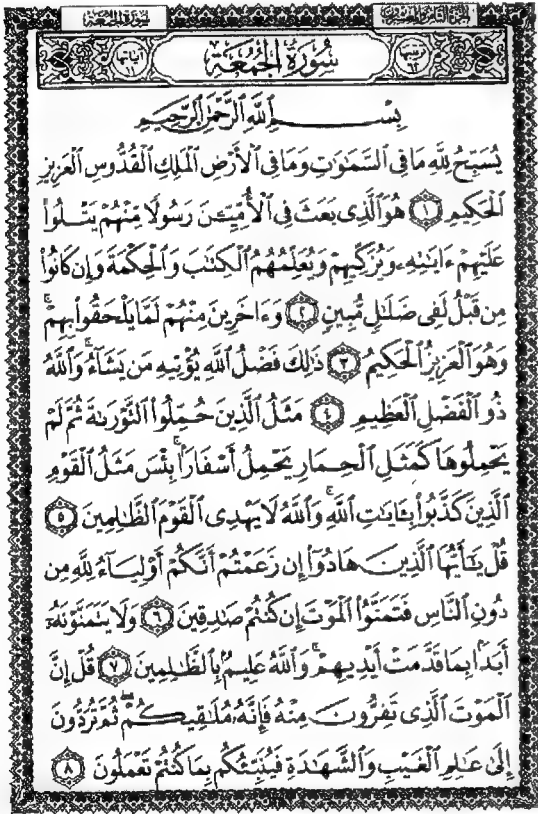 سورة الجمعة
الجزء الثامن والعشرون
آياتها ١١
سُورَةُ الجُمُعَةِ
ترتيبها ٦٢
بِسْمِ ٱللَّهِ ٱلرَّحْمَٰنِ ٱلرَّحِيمِ
يُسَبِّحُ لِلَّهِ مَا فِى ٱلسَّمَٰوَٰتِ وَمَا فِى ٱلْأَرْضِ ٱلْمَلِكِ ٱلْقُدُّوسِ ٱلْعَزِيزِ
ٱلْحَكِيمِ ١ هُوَ ٱلَّذِى بَعَثَ فِى ٱلْأُمِّيِّـۧنَ رَسُولًا مِّنْهُمْ يَتْلُوا۟
عَلَيْهِمْ ءَايَٰتِهِۦ وَيُزَكِّيهِمْ وَيُعَلِّمُهُمُ ٱلْكِتَٰبَ وَٱلْحِكْمَةَ وَإِن كَانُوا۟
مِن قَبْلُ لَفِى ضَلَٰلٍ مُّبِينٍ ٢ وَءَاخَرِينَ مِنْهُمْ لَمَّا يَلْحَقُوا۟ بِهِمْ ۚ
وَهُوَ ٱلْعَزِيزُ ٱلْحَكِيمُ ٣ ذَٰلِكَ فَضْلُ ٱللَّهِ يُؤْتِيهِ مَن يَشَآءُ ۚ وَٱللَّهُ
ذُو ٱلْفَضْلِ ٱلْعَظِيمِ ٤ مَثَلُ ٱلَّذِينَ حُمِّلُوا۟ ٱلتَّوْرَىٰةَ ثُمَّ لَمْ
يَحْمِلُوهَا كَمَثَلِ ٱلْحِمَارِ يَحْمِلُ أَسْفَارًۢا ۚ بِئْسَ مَثَلُ ٱلْقَوْمِ
ٱلَّذِينَ كَذَّبُوا۟ بِـَٔايَٰتِ ٱللَّهِ ۚ وَٱللَّهُ لَا يَهْدِى ٱلْقَوْمَ ٱلظَّٰلِمِينَ ٥
قُلْ يَٰٓأَيُّهَا ٱلَّذِينَ هَادُوٓا۟ إِن زَعَمْتُمْ أَنَّكُمْ أَوْلِيَآءُ لِلَّهِ مِن
دُونِ ٱلنَّاسِ فَتَمَنَّوُا۟ ٱلْمَوْتَ إِن كُنتُمْ صَٰدِقِينَ ٦ وَلَا يَتَمَنَّوْنَهُۥٓ
أَبَدًۢا بِمَا قَدَّمَتْ أَيْدِيهِمْ ۚ وَٱللَّهُ عَلِيمٌۢ بِٱلظَّٰلِمِينَ ٧ قُلْ إِنَّ
ٱلْمَوْتَ ٱلَّذِى تَفِرُّونَ مِنْهُ فَإِنَّهُۥ مُلَٰقِيكُمْ ۖ ثُمَّ تُرَدُّونَ
إِلَىٰ عَٰلِمِ ٱلْغَيْبِ وَٱلشَّهَٰدَةِ فَيُنَبِّئُكُم بِمَا كُنتُمْ تَعْمَلُونَ ٨